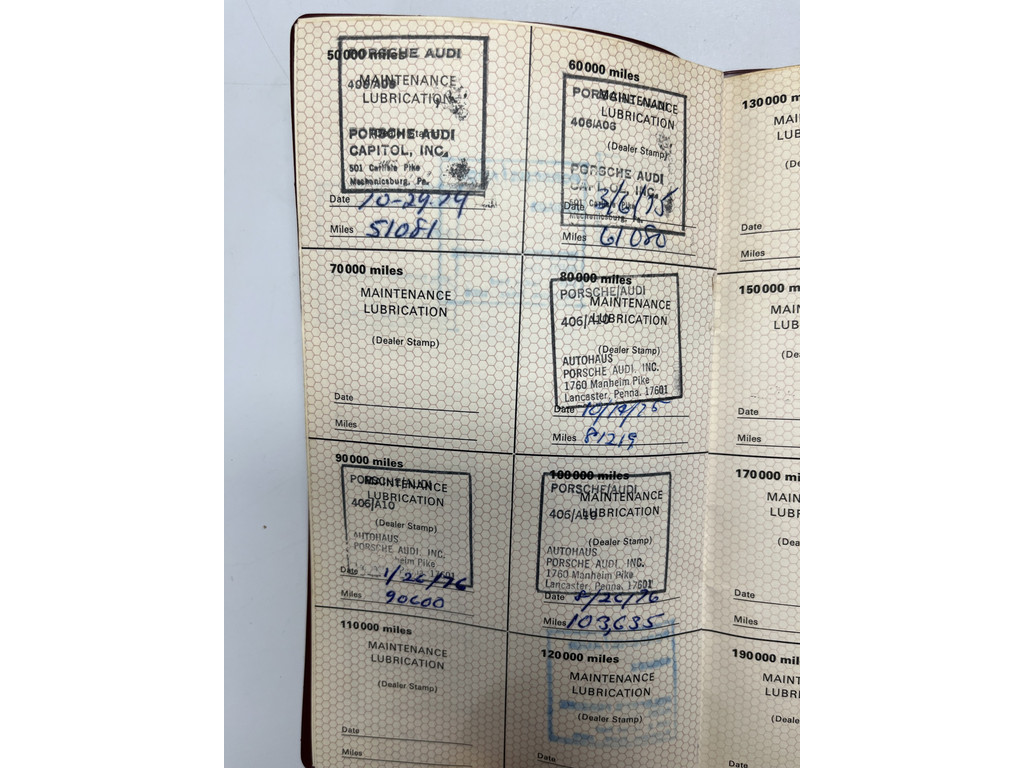 50000 miles
PORSCHE AUDI
MAINTENANCE
406/A09
LUBRICATION
(Dealer Stamp)
PORSCHE AUDI
CAPITOL, INC.
501 Carlisle Pike
Mechanicsburg, Pa.
Date 10-29-74
Miles 51081
60000 miles
PORSCHE AUDI
MAINTENANCE
LUBRICATION
406/A06
(Dealer Stamp)
PORSCHE AUDI
CAPITOL, INC.
501 Carlisle Pike
Mechanicsburg, Pa.
Date 3/6/75
Miles 61080
70000 miles
MAINTENANCE
LUBRICATION
(Dealer Stamp)
Date
Miles
80000 miles
PORSCHE/AUDI
MAINTENANCE
406/A10
LUBRICATION
(Dealer Stamp)
AUTOHAUS
PORSCHE AUDI, INC.
1760 Manheim Pike
Lancaster, Penna. 17601
Date 10/19/75
Miles 81219
90000 miles
PORSCHE/AUDI
MAINTENANCE
LUBRICATION
406/A10
(Dealer Stamp)
AUTOHAUS
PORSCHE AUDI, INC.
Manheim Pike
Date 1/26/76
Miles 90600
100000 miles
PORSCHE/AUDI
MAINTENANCE
LUBRICATION
406/A10
(Dealer Stamp)
AUTOHAUS
PORSCHE AUDI, INC.
1760 Manheim Pike
Lancaster, Penna. 17601
Date 8/26/76
Miles 103,635
110000 miles
MAINTENANCE
LUBRICATION
(Dealer Stamp)
Date
Miles
120000 miles
MAINTENANCE
LUBRICATION
(Dealer Stamp)
Date
130000 m
MAIN
LUB
(De
Date
Miles
150000 m
MAI
LUB
(De
Date
Miles
170000 mi
MAIN
LUBR
(De
Date
Miles
190000 mil
MAIN
LUBR
(Deale
Date